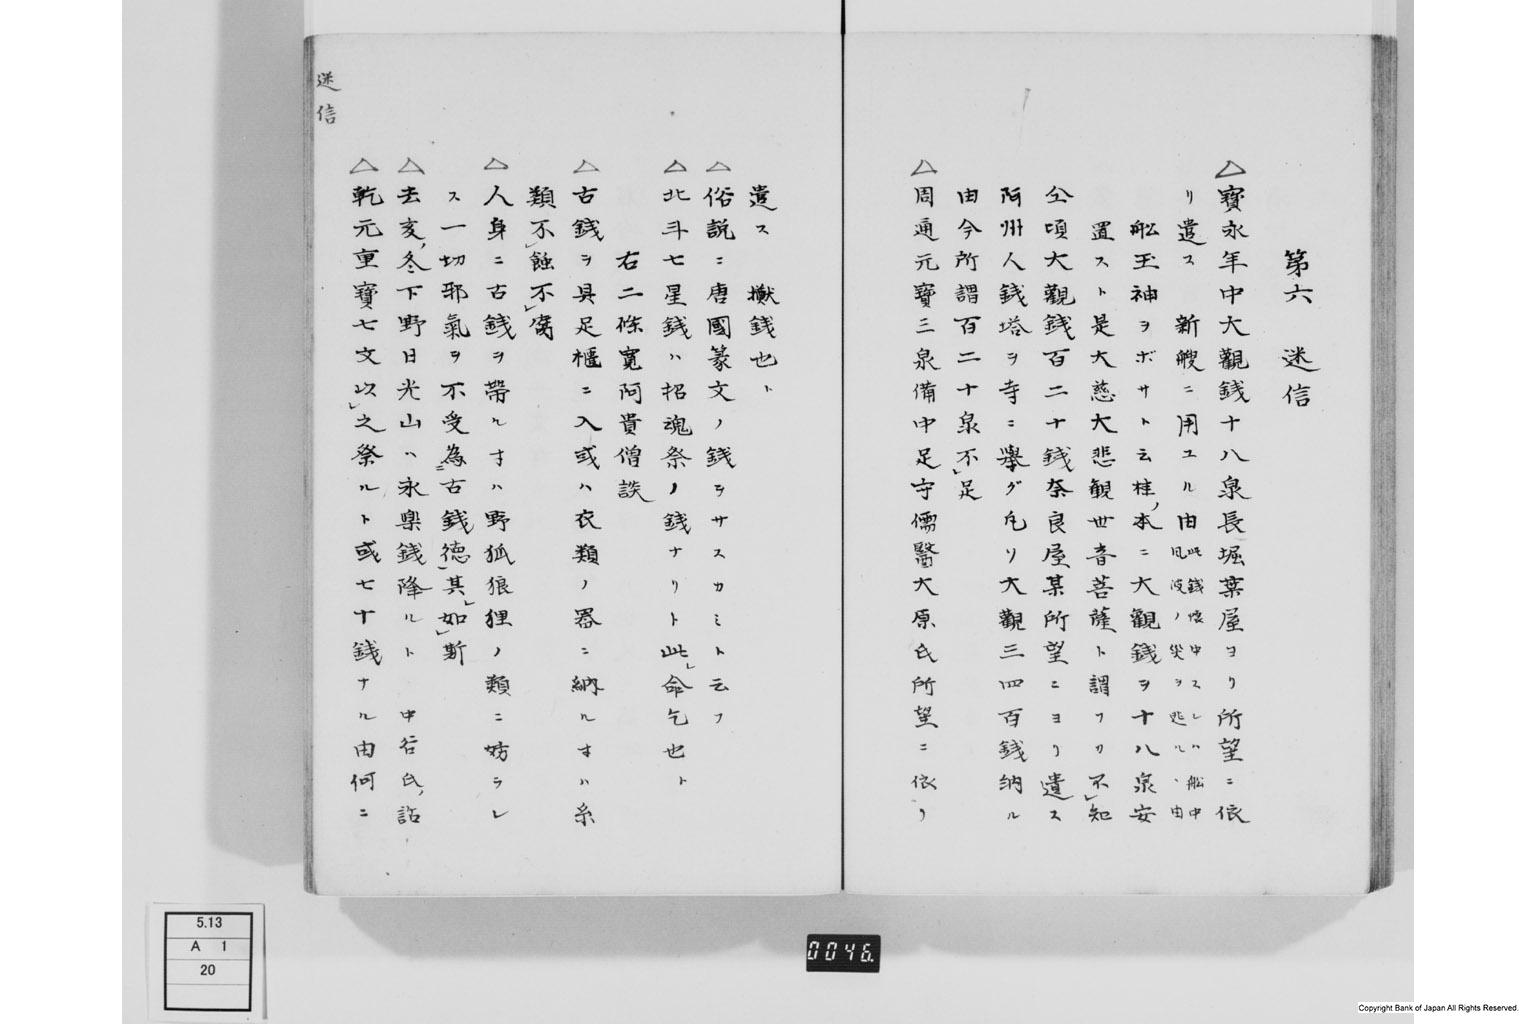 第六 迷信
△寶永年中大觀錢十八泉長堀葉屋ヨリ所望ニ依
リ遣ス 新艘ニ用ユル由此錢懷中スレハ船中風波ノ災ヲ逃ルヽ由
船玉神ヲボサト云桂本ニ大觀錢ヲ十八泉安
置スト是大慈大悲観世音菩薩ト謂フカ不知
仝頃大觀錢百二十錢奈良屋某所望ニヨリ遣ス
阿州人錢塔ヲ寺ニ擧グ凡リ大觀三四百錢納ル
由今所謂百二十泉不足
△周通元寶三泉備中足守儒醫大原氏所望ニ依リ
遣ス 撳錢也ト
△俗説ニ唐國篆文ノ錢ヲサスカミト云フ
△北斗七星錢ハ招魂祭ノ錢ナリト此命乞也ト
右二條寛阿貴僧談
△古錢ヲ具足櫃ニ入或ハ衣類ノ器ニ納ルオハ糸
類不蝕不腐
△人身ニ古錢ヲ帶ルオハ野狐狼狸ノ類ニ妨ラレ
ス一切邪氣ヲ不受為古錢徳其如斯
△去亥冬下野日光山ハ永樂錢降ルト 中谷氏話
△乾元重寶七文以之祭ルト或七十錢ナル由何ニ
迷信
5.13
A 1
20
0046.
Copyright Bank of Japan All Rights Reserved.